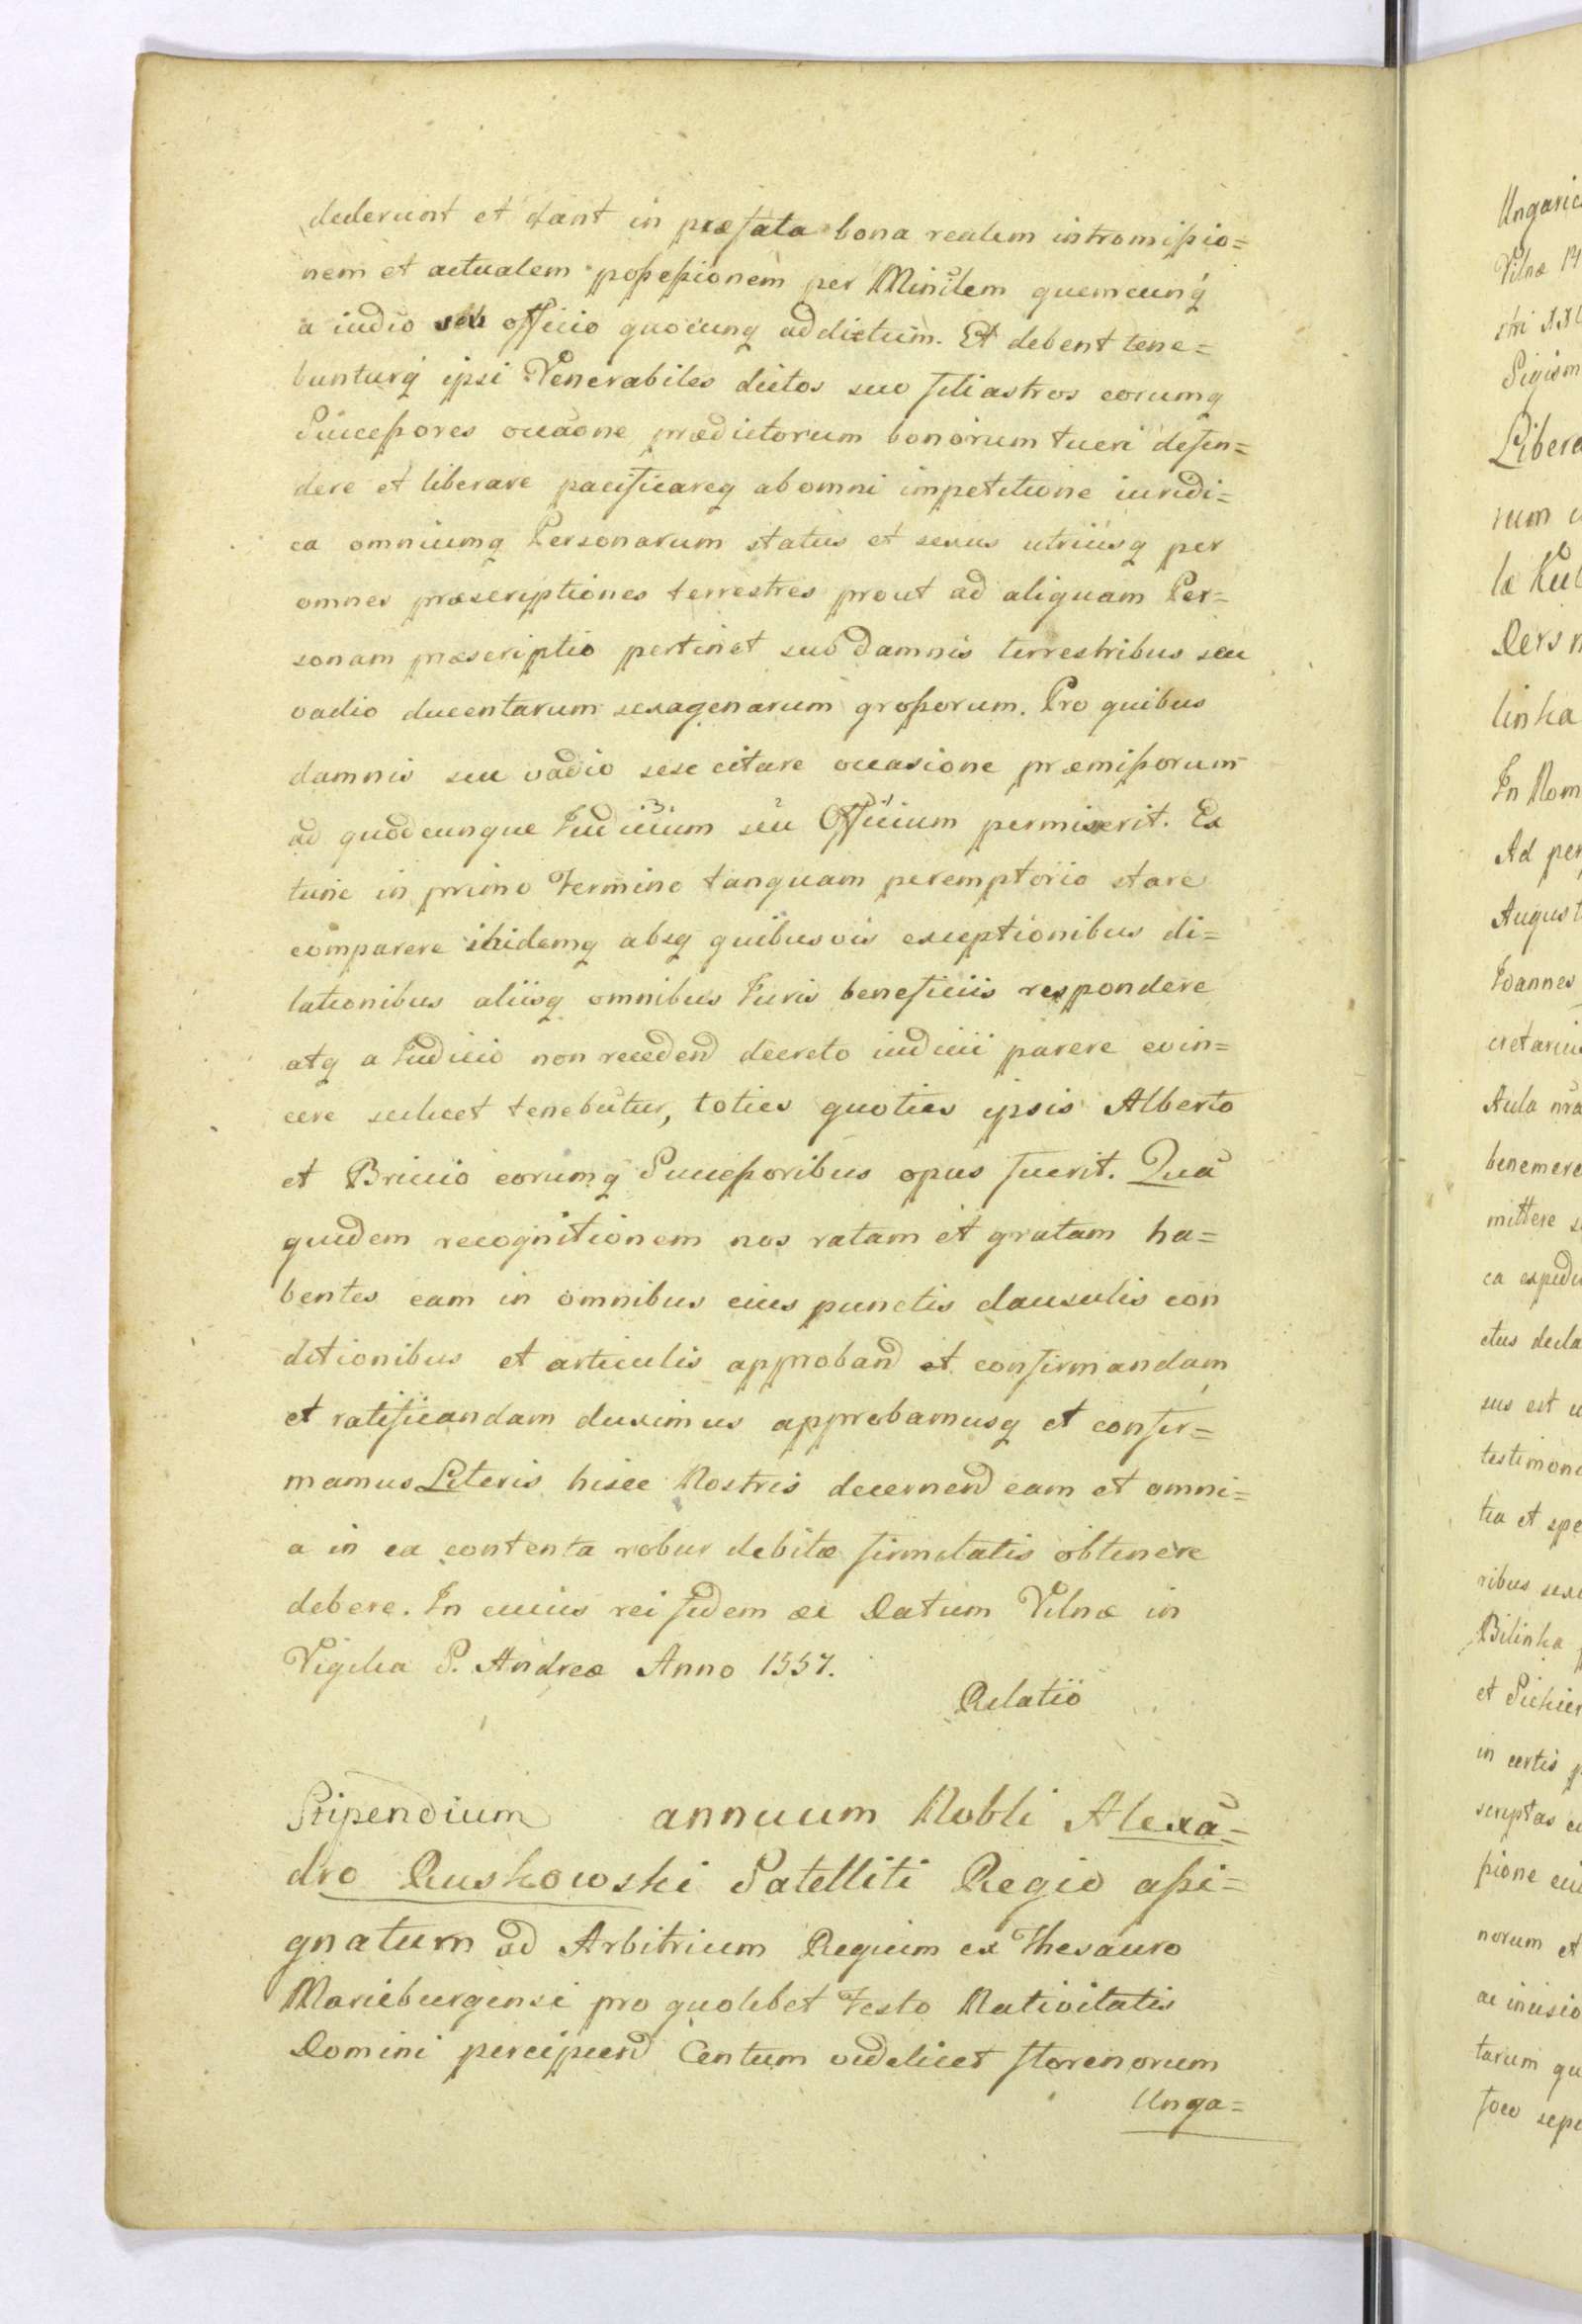 dederunt et dant in præfata bona realem intromißio=
nem et actualem poßeßionem per Minĩlem quemcunq́
a iudio seu officio quocunq addictum. Et debent tene=
bunturq́ ipsi Venerabiles dictos suo filiastros eorumq
Succeßores occãone prædictorum bonorum tueri defen=
dere et liberare pacificareq ab omni impetitione iuridi=
ca omniumq Personarum status et sexus utriusq per
omnes præscriptiones terrestres prout ad aliquam Per=
sonam præscriptio pertinet sub damnis terrestribus seu
vadio ducentarum sexagenarum großorum. Pro quibus
damnis seu vadio sese citare occasione præmißorum
ad quodcunque Iudicium seu Officium permiserit. Ex
tunc in primo Termino tanquam peremptorio stare
comparere ibidemq absq quibusvis exceptionibus di=
lationibus aliisq omnibus Iuris beneficiis respondere
atq a Iudicio non recedend decreto iudicii parere evin=
cere scilicet tenebutur, toties quoties ipsis Alberto
et Briccio eorumq Succeßoribus opus fuerit. Quã
quidem recognitionem nos ratam et gratam ha=
bentes eam in omnibus eius punctis clausulis con
ditionibus et articulis approband et confirmandam
et ratificandam duximus approbamusq et confir=
mamus Literis hisce Nostris decernend eam et omni=
a in ea contenta robur debitæ firmitatis obtinere
debere. In cuius rei fidem ac Datum Vilnæ in
Vigilia S. Andreæ Anno 1557.
Relatio
Stipendium annuum Nobli Alexã=
dro Ruskowski Satelliti Regio aßi=
gnatum ad Arbitrium Regium ex Thesauro
Marieburgensi pro quolibet Festo Nativitatis
Domini percipiend Centum videlicet florenorum
Unga=
Ungaric
Vilnæ
Sigism
Libera
rum
læ
linka
In Nom
Ad per
August
Ioannes
cretariu
Aula nrã
benemere
mittere
ca expedi
ctus decla
sus est
testimoni
tia et spe
ribus
Bilinka
et
in certis
scriptas
ßione
norum et
ac incisio
tarum qu
foco